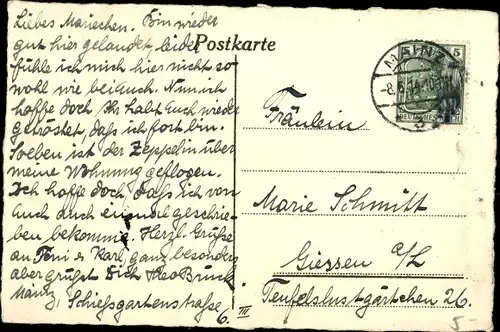 Postkarte
Liebes Mariechen. Bin wieder
gut hier gelandet, leider
fühle ich mich hier nicht so
wohl wie bei Euch. Nun ich
hoffe doch, Ihr habt Euch wieder
getröstet, daß ich fort bin.
Soeben ist der Zeppelin über
meine Wohnung geflogen.
Ich hoffe doch, daß ich von
Euch auch einmal geschrie-
ben bekomme. Herzl. Grüße
an Toni & Karl, ganz besonders
aber grüßt Dich Theo Bruck
Mainz, Schießgartenstraße
6. III
MAINZ
-8.6.14.
5
DEUTSCHES REICH
Fräulein
Marie Schmitt
Giessen a/L
Teufelslustgärtchen 26.
5-